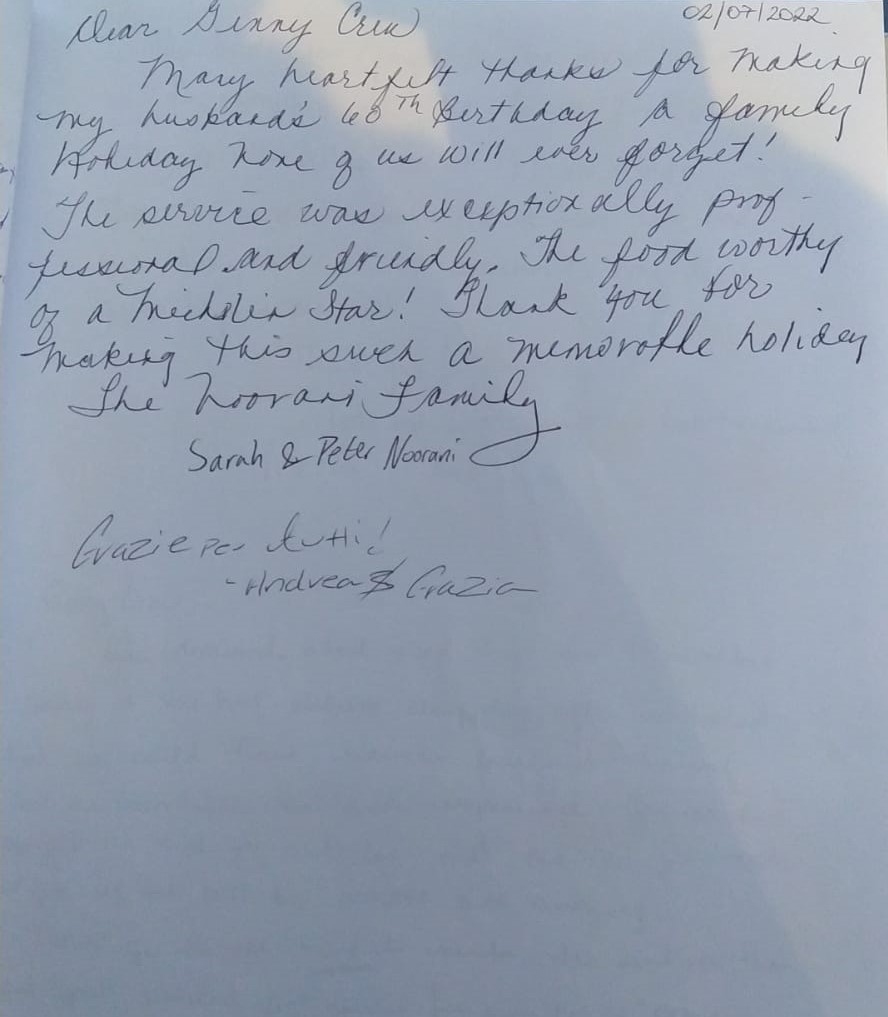 02/07/2022
Dear Genny Crew
Many heartfelt thanks for making
my husband's 60TH Birthday a family
Holiday none of us will ever forget!
The service was exceptionally prof-
fessional and friendly. The food worthy
of a Michelin Star! Thank you for
making this such a memorable holiday
The Noorani Family
Sarah & Peter Noorani
Grazie per tutti!
- Andrea & Grazia